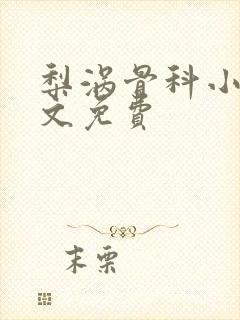 梨涡骨科小
文免費
末栗